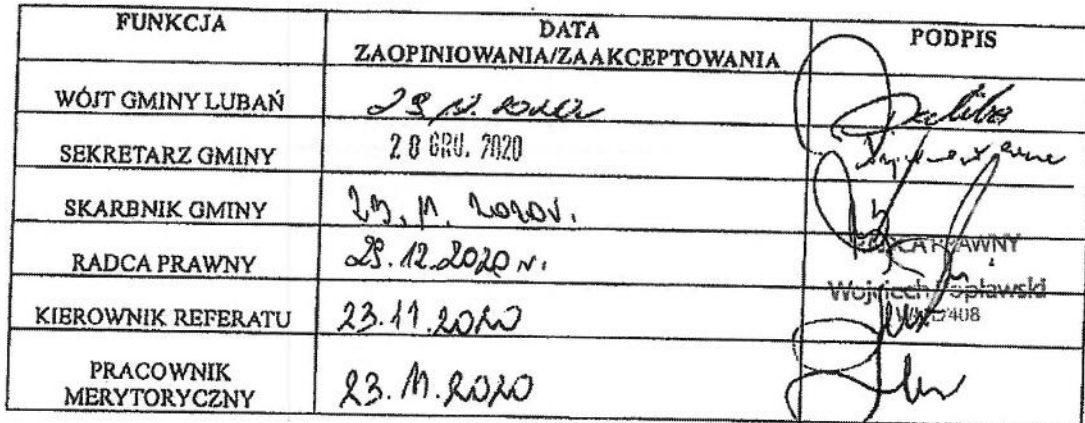 FUNKCJA DATA PODPIS
ZAOPINIOWANIA/ZAAKCEPTOWANIA
WÓJT GMINY LUBAŃ
SEKRETARZ GMINY 28 GRU. 2020
SKARBNIK GMINY
RADCA PRAWNY 29.12.2020 r. RADCA PRAWNY
Wojciech Popławski
KIEROWNIK REFERATU 23.11.2020
PRACOWNIK
MERYTORYCZNY 23.11.2020